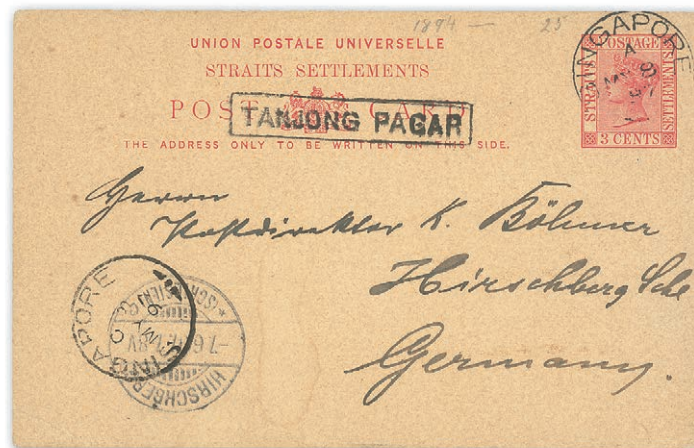 1894 — 25
UNION POSTALE UNIVERSELLE
STRAITS SETTLEMENTS
POST CARD
TANJONG PAGAR
THE ADDRESS ONLY TO BE WRITTEN ON THIS SIDE.
SINGAPORE
A
STRAITS
POSTAGE
SETTLEMENTS
3 CENTS
Herrn
Postdirektor K. Böhmer
Hirschberg Schl
Germany.
SINGAPORE
HIRSCHBERG